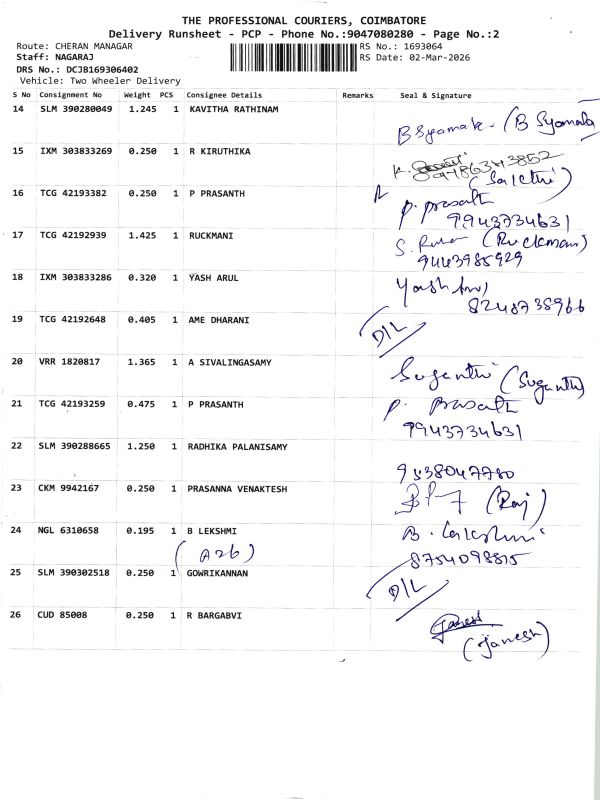 THE PROFESSIONAL COURIERS, COIMBATORE
Delivery Runsheet - PCP - Phone No.:9047080280 - Page No.:2
Route: CHERAN MANAGAR RS No.: 1693064
Staff: NAGARAJ RS Date: 02-Mar-2026
DRS No.: DCJB169306402
Vehicle: Two Wheeler Delivery
S No Consignment No Weight PCS Consignee Details Remarks Seal & Signature
14 SLM 390280049 1.245 1 KAVITHA RATHINAM
B Syamala (B Syamala)
15 IXM 303833269 0.250 1 R KIRUTHIKA
(Sakthi)
16 TCG 42193382 0.250 1 P PRASANTH
P. Prasath
9943734631
17 TCG 42192939 1.425 1 RUCKMANI
(Ruckmani)
9443985929
18 IXM 303833286 0.320 1 YASH ARUL
Yash Arul
8248738966
19 TCG 42192648 0.405 1 AME DHARANI
D/L
20 VRR 1820817 1.365 1 A SIVALINGASAMY
Suganthi (Suganthi)
21 TCG 42193259 0.475 1 P PRASANTH
P. Prasath
9943734631
22 SLM 390288665 1.250 1 RADHIKA PALANISAMY
9538047780
23 CKM 9942167 0.250 1 PRASANNA VENAKTESH
(Raj)
24 NGL 6310658 0.195 1 B LEKSHMI
B. Lekshmi
(A26)
8754098815
25 SLM 390302518 0.250 1 GOWRIKANNAN
D/L
26 CUD 85008 0.250 1 R BARGABVI
Janesh
(Janesh)